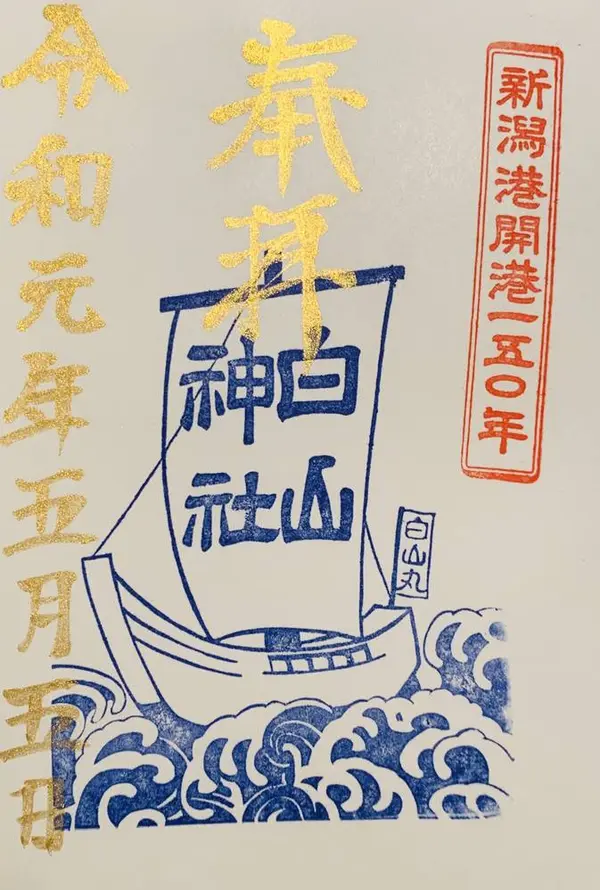 新潟港開港一五〇年
奉拝
白山
神社
白山丸
令和元年五月五日